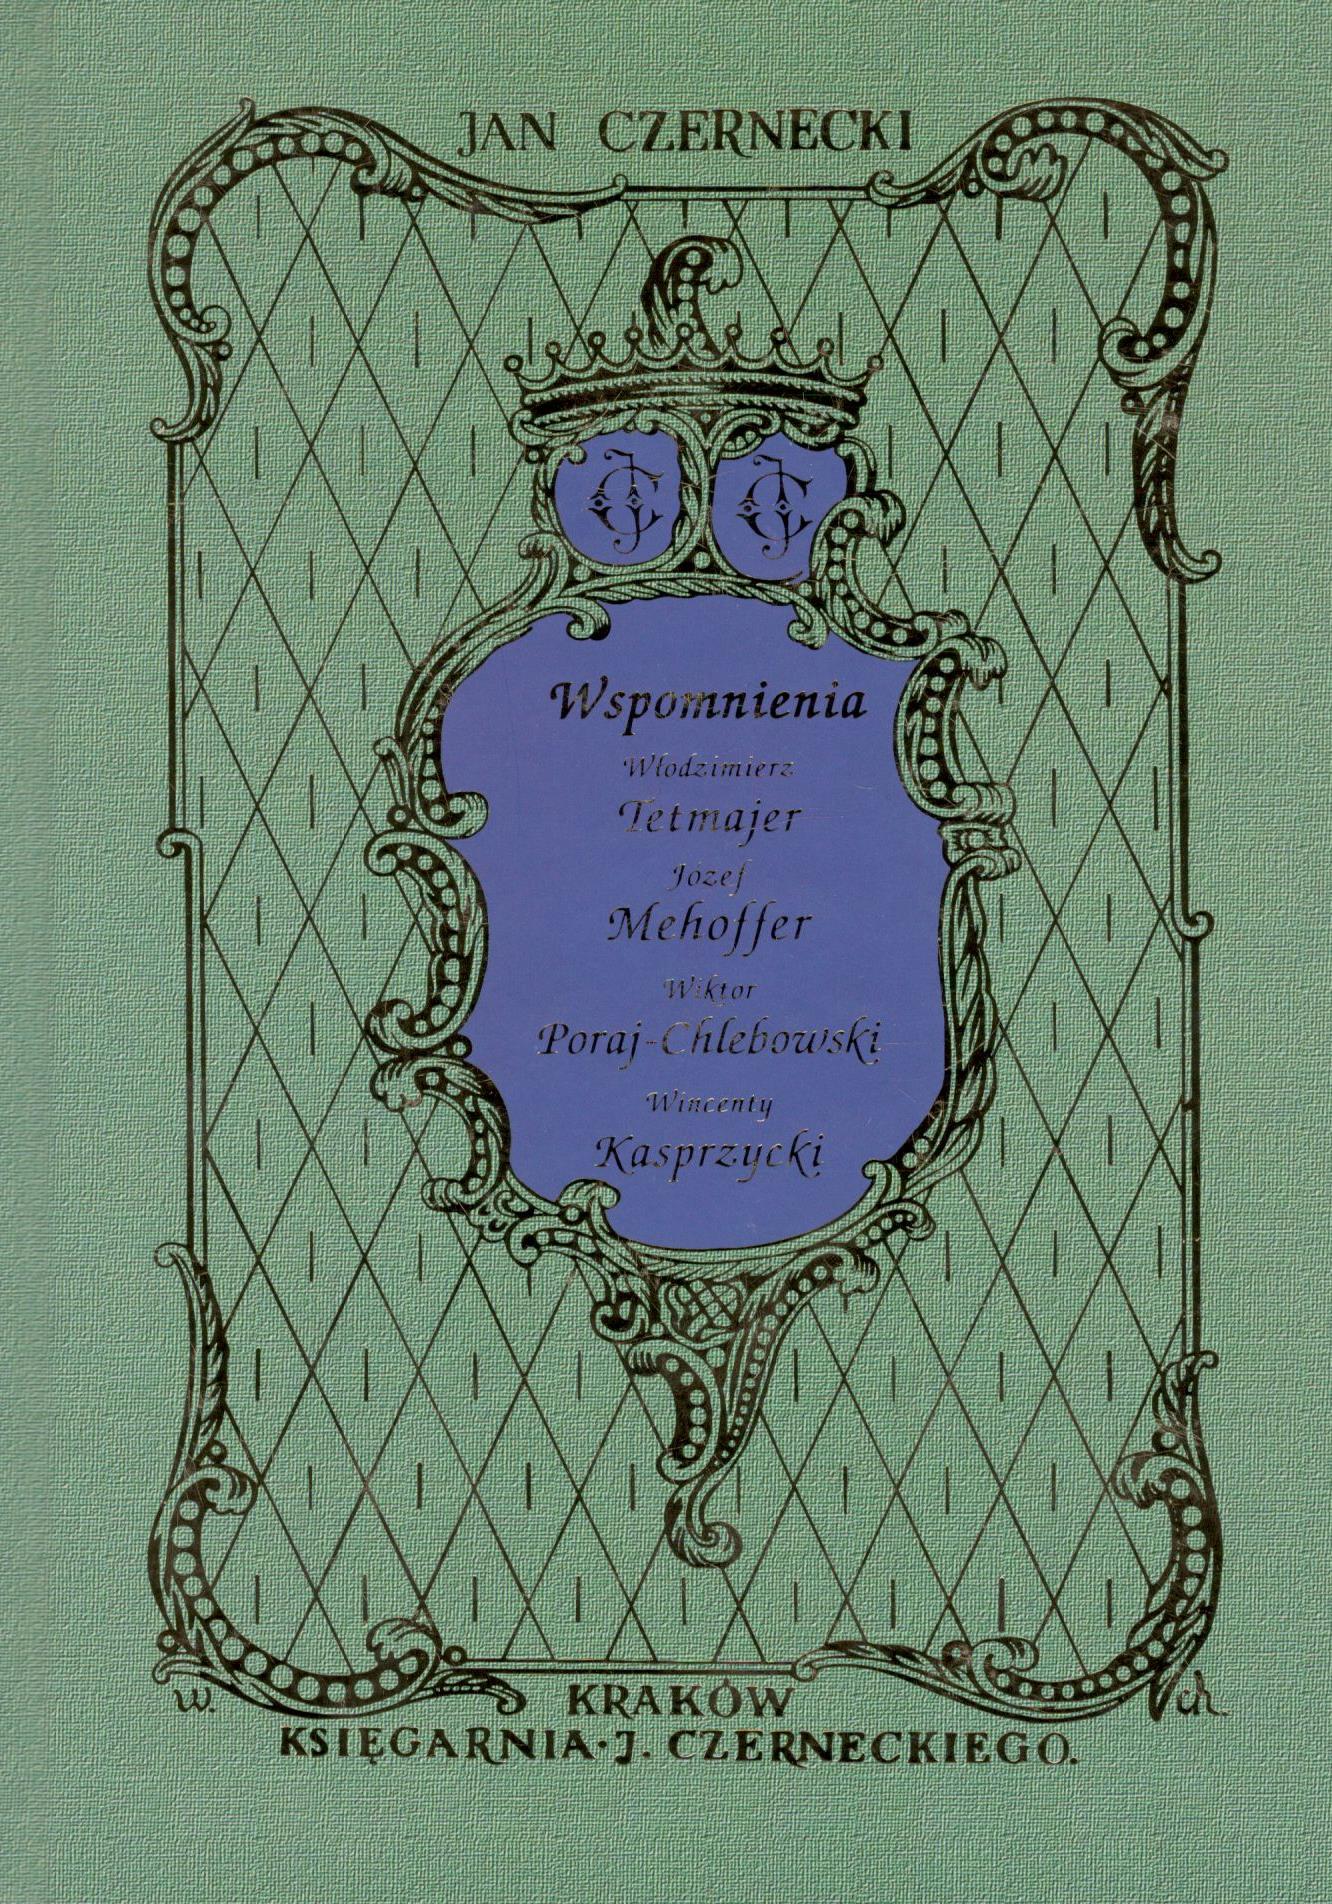 JAN CZERNECKI
JC JC
Wspomnienia
Włodzimierz
Tetmajer
Józef
Mehoffer
Wiktor
Poraj-Chlebowski
Wincenty
Kasprzycki
W. ch.
KRAKÓW
KSIĘGARNIA·J. CZERNECKIEGO.